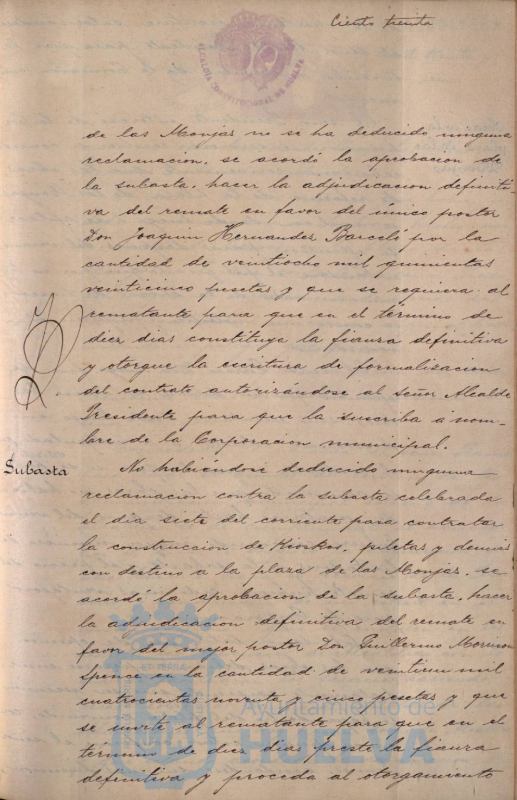 Ciento treinta
ALCALDIA CONSTITUCIONAL DE HUELVA
de las Monjas no se ha deducido ninguna
reclamacion, se acordó la aprobacion de
la subasta, hacer la adjudicacion definiti-
va del remate en favor del único postor
Don Joaquin Hernandez Barceló por la
cantidad de veintiocho mil quinientas
veinticinco pesetas y que se requiera al
rematante para que en el término de
diez dias constituya la fianza definitiva
y otorgue la escritura de formalizacion
del contrato autorizándose al señor Alcalde
Presidente para que la suscriba á nom-
bre de la Corporacion municipal.
Subasta
No habiéndose deducido ninguna
reclamacion contra la subasta celebrada
el dia siete del corriente para contratar
la construccion de Kioskos, piletas y demás
con destino a la plaza de las Monjas, se
acordó la aprobacion de la subasta, hacer
la adjudicacion definitiva del remate en
favor del mejor postor Don Guillermo Morrison
Spence en la cantidad de veintiun mil
cuatrocientas noventa y cinco pesetas y que
se invite al rematante para que en el
término de diez dias preste la fianza
definitiva y proceda al otorgamiento
Ayuntamiento de
HUELVA